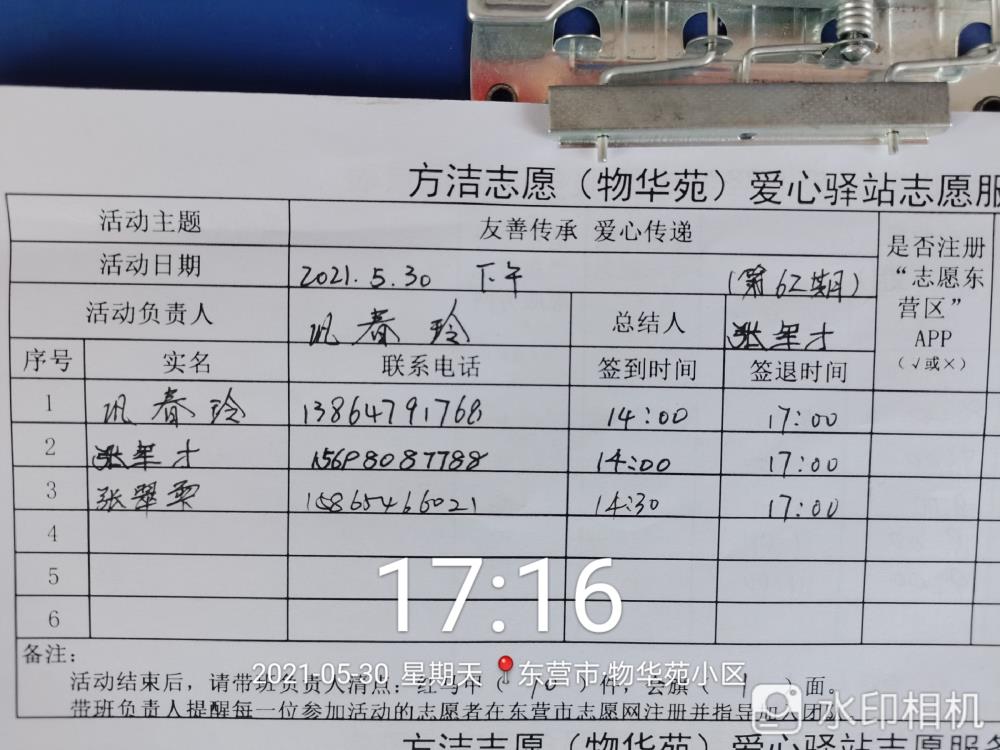 方洁志愿（物华苑）爱心驿站志愿服
活动主题 友善传承 爱心传递 是否注册“志愿东营区”APP（√或×）
活动日期 2021.5.30 下午 （第62期）
活动负责人 巩春玲 总结人 张军才
序号 实名 联系电话 签到时间 签退时间
1 巩春玲 13864791768 14:00 17:00
2 张军才 15698087788 14:00 17:00
3 张翠雲 15865466021 14:30 17:00
4
5
6
17:16
备注：
2021.05.30 星期天 东营市·物华苑小区
活动结束后，请带班负责人清点：红马甲（10）件，会旗（1）面。
带班负责人提醒每一位参加活动的志愿者在东营市志愿网注册并指导加入团队
水印相机
方洁志愿（物华苑）爱心驿站志愿服务